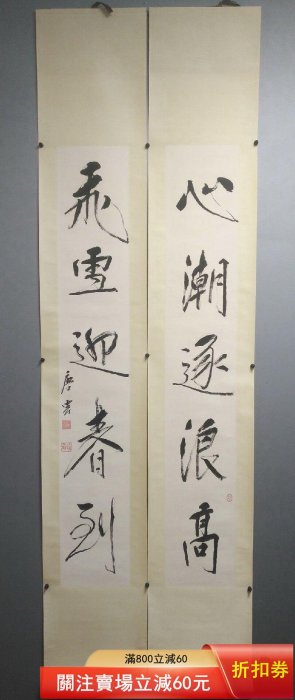 心潮逐浪高
飛雪迎春到
唐雲
滿800立減60
關注賣場立減60元
折扣券